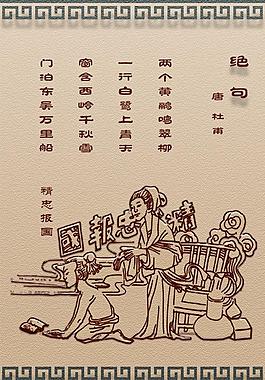 绝句
唐 杜甫
两个黄鹂鸣翠柳
一行白鹭上青天
窗含西岭千秋雪
门泊东吴万里船
精忠报国
精忠報國